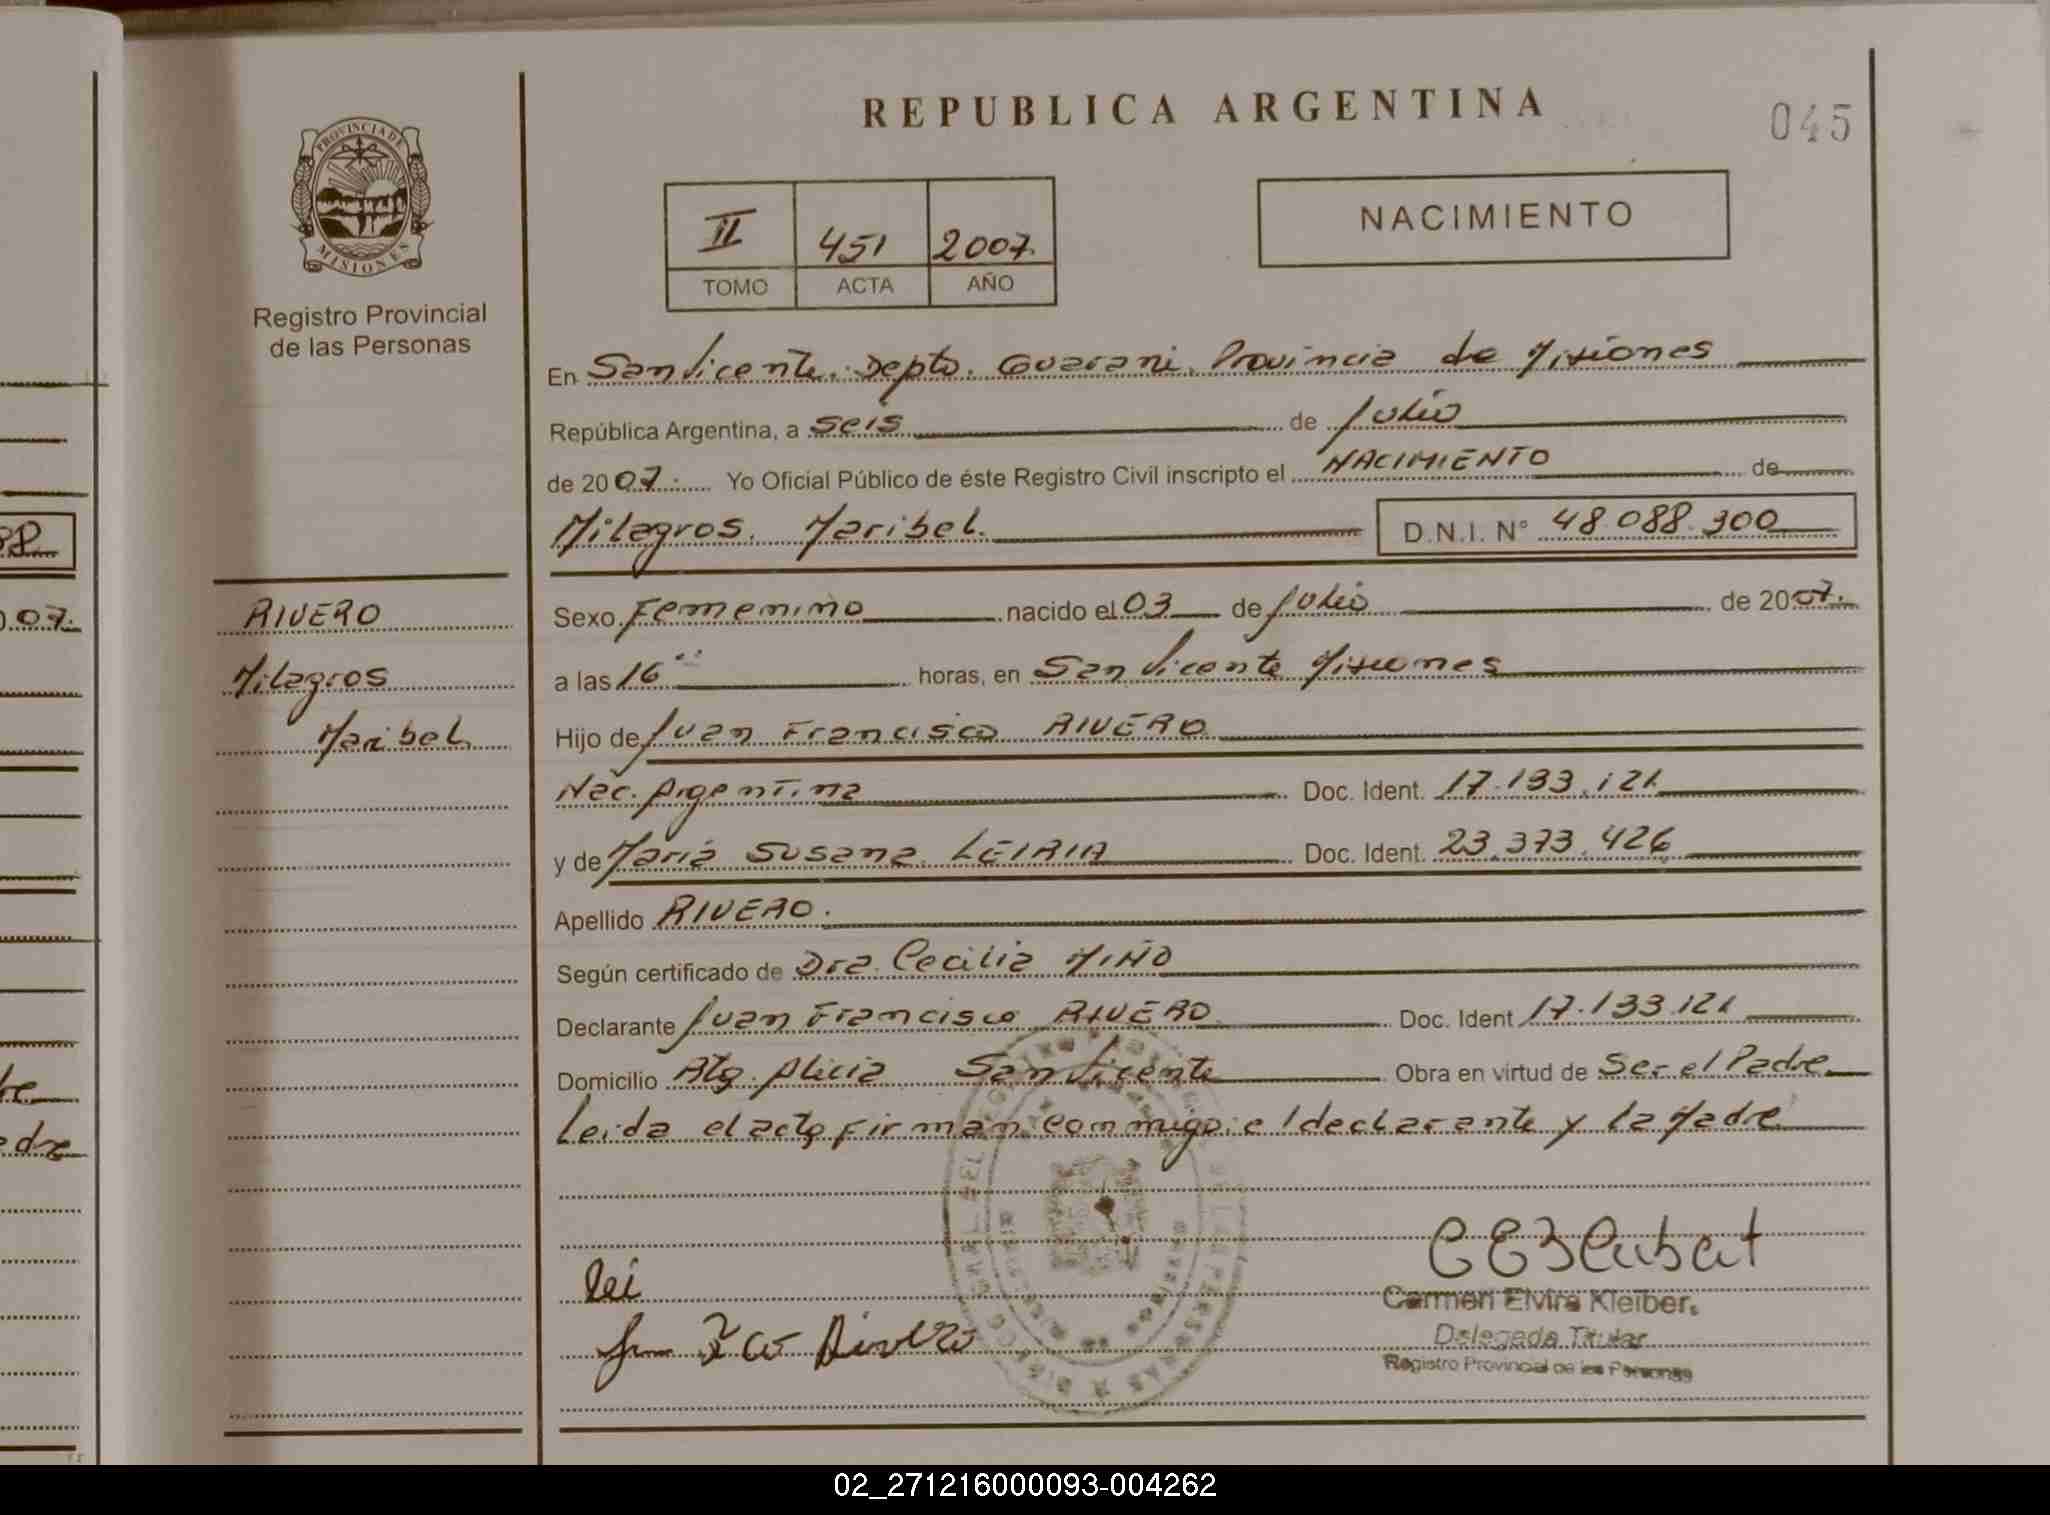 REPUBLICA ARGENTINA
045
PROVINCIA DE
MISIONES
Registro Provincial
de las Personas
II 451 2007
TOMO ACTA AÑO
NACIMIENTO
En San Vicente. Depto. Guarani. Provincia de Misiones
República Argentina, a seis de Julio
de 2007. Yo Oficial Público de éste Registro Civil inscripto el NACIMIENTO de
Milagros. Maribel. D.N.I. N° 48.088.300
RIVERO
Milagros
Maribel
Sexo Femenino nacido el 03 de Julio de 2007.
a las 16 horas, en San Vicente Misiones
Hijo de Juan Francisco RIVERO
Nac. Argentina Doc. Ident. 17.133.121
y de Maria Susana LEIRIA Doc. Ident. 23.373.426
Apellido RIVERO.
Según certificado de Dra. Cecilia MIÑO
Declarante Juan Francisco RIVERO Doc. Ident 17.133.121
Domicilio Alicia San Vicente Obra en virtud de Ser el Padre
Leida el acta firman conmigo el declarante y la Madre
Lei
Rivero
Carmen Elvira Kleiber.
Delegada Titular
Registro Provincial de las Personas
88.
07.
dre
02_271216000093-004262